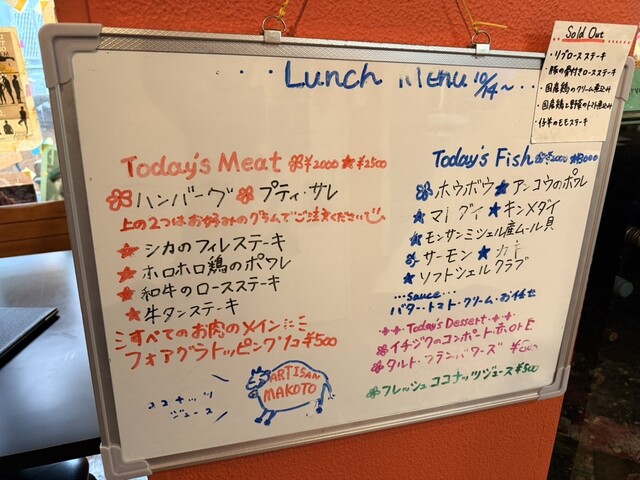 Lunch MENU 10/14~
Sold Out
・リブロースステーキ
・豚の骨付きロースステーキ
・国産鶏のクリーム煮込み
・国産鶏と野菜のトマト煮込み
・仔羊のモモステーキ
Today's Meat ❀¥2000 ★¥2500
❀ハンバーグ ❀プティ・サレ
上の2つはお好みのグラムでご注文ください
★シカのフィレステーキ
★ホロホロ鶏のポワレ
★和牛のロースステーキ
★牛タンステーキ
すべてのお肉のメインに
フォアグラトッピング1コ¥500
ARTISAN
MAKOTO
ココナッツ
ジュース
Today's Fish
❀ホウボウ ★アンコウのポワレ
★マトダイ ★キンメダイ
★モンサンミシェル産ムール貝
❀サーモン ★カキ
★ソフトシェルクラブ
…sauce…
バター・トマト・クリーム・お任せ
Today's Dessert
❀イチジクのコンポート
❀タルト・フランボワーズ
❀フレッシュココナッツジュース¥500